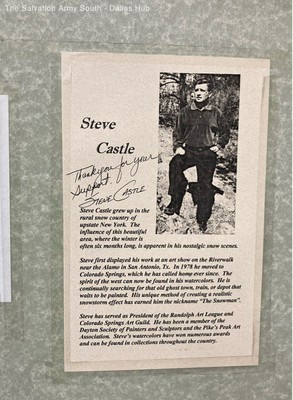 The Salvation Army South - Dallas Hub
Steve
Castle
Thank you for your
Support.
STEVE CASTLE
Steve Castle grew up in the
rural snow country of
upstate New York. The
influence of this beautiful
area, where the winter is
often six months long, is apparent in his nostalgic snow scenes.
Steve first displayed his work at an art show on the Riverwalk
near the Alamo in San Antonio, Tx. In 1978 he moved to
Colorado Springs, which he has called home ever since. The
spirit of the west can now be found in his watercolors. He is
continually searching for that old ghost town, train, or depot that
waits to be painted. His unique method of creating a realistic
snowstorm effect has earned him the nickname "The Snowman".
Steve has served as President of the Randolph Art League and
Colorado Springs Art Guild. He has been a member of the
Dayton Society of Painters and Sculptors and the Pike's Peak Art
Association. Steve's watercolors have won numerous awards
and can be found in collections throughout the country.